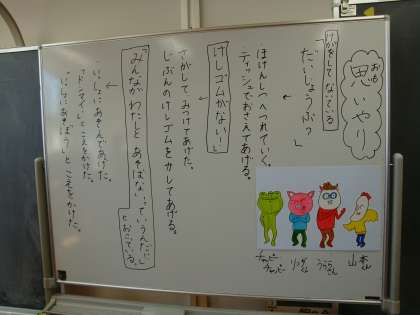 思いやり
おも
けがをして ないている
「だいじょうぶ?」
・ほけんしつへつれていく。
・ティッシュでおさえてあげる。
けしゴムがない!
・さがして みつけてあげた。
・じぶんのけしゴムをかしてあげる。
「みんながわたしと あそばないっていうんだ」
とおこている。
・いっしょにあそんであげた。
・「ドンマイ」とこえをかけた。
・「いっしょにあそぼう」と こえをかけた。
山本くん